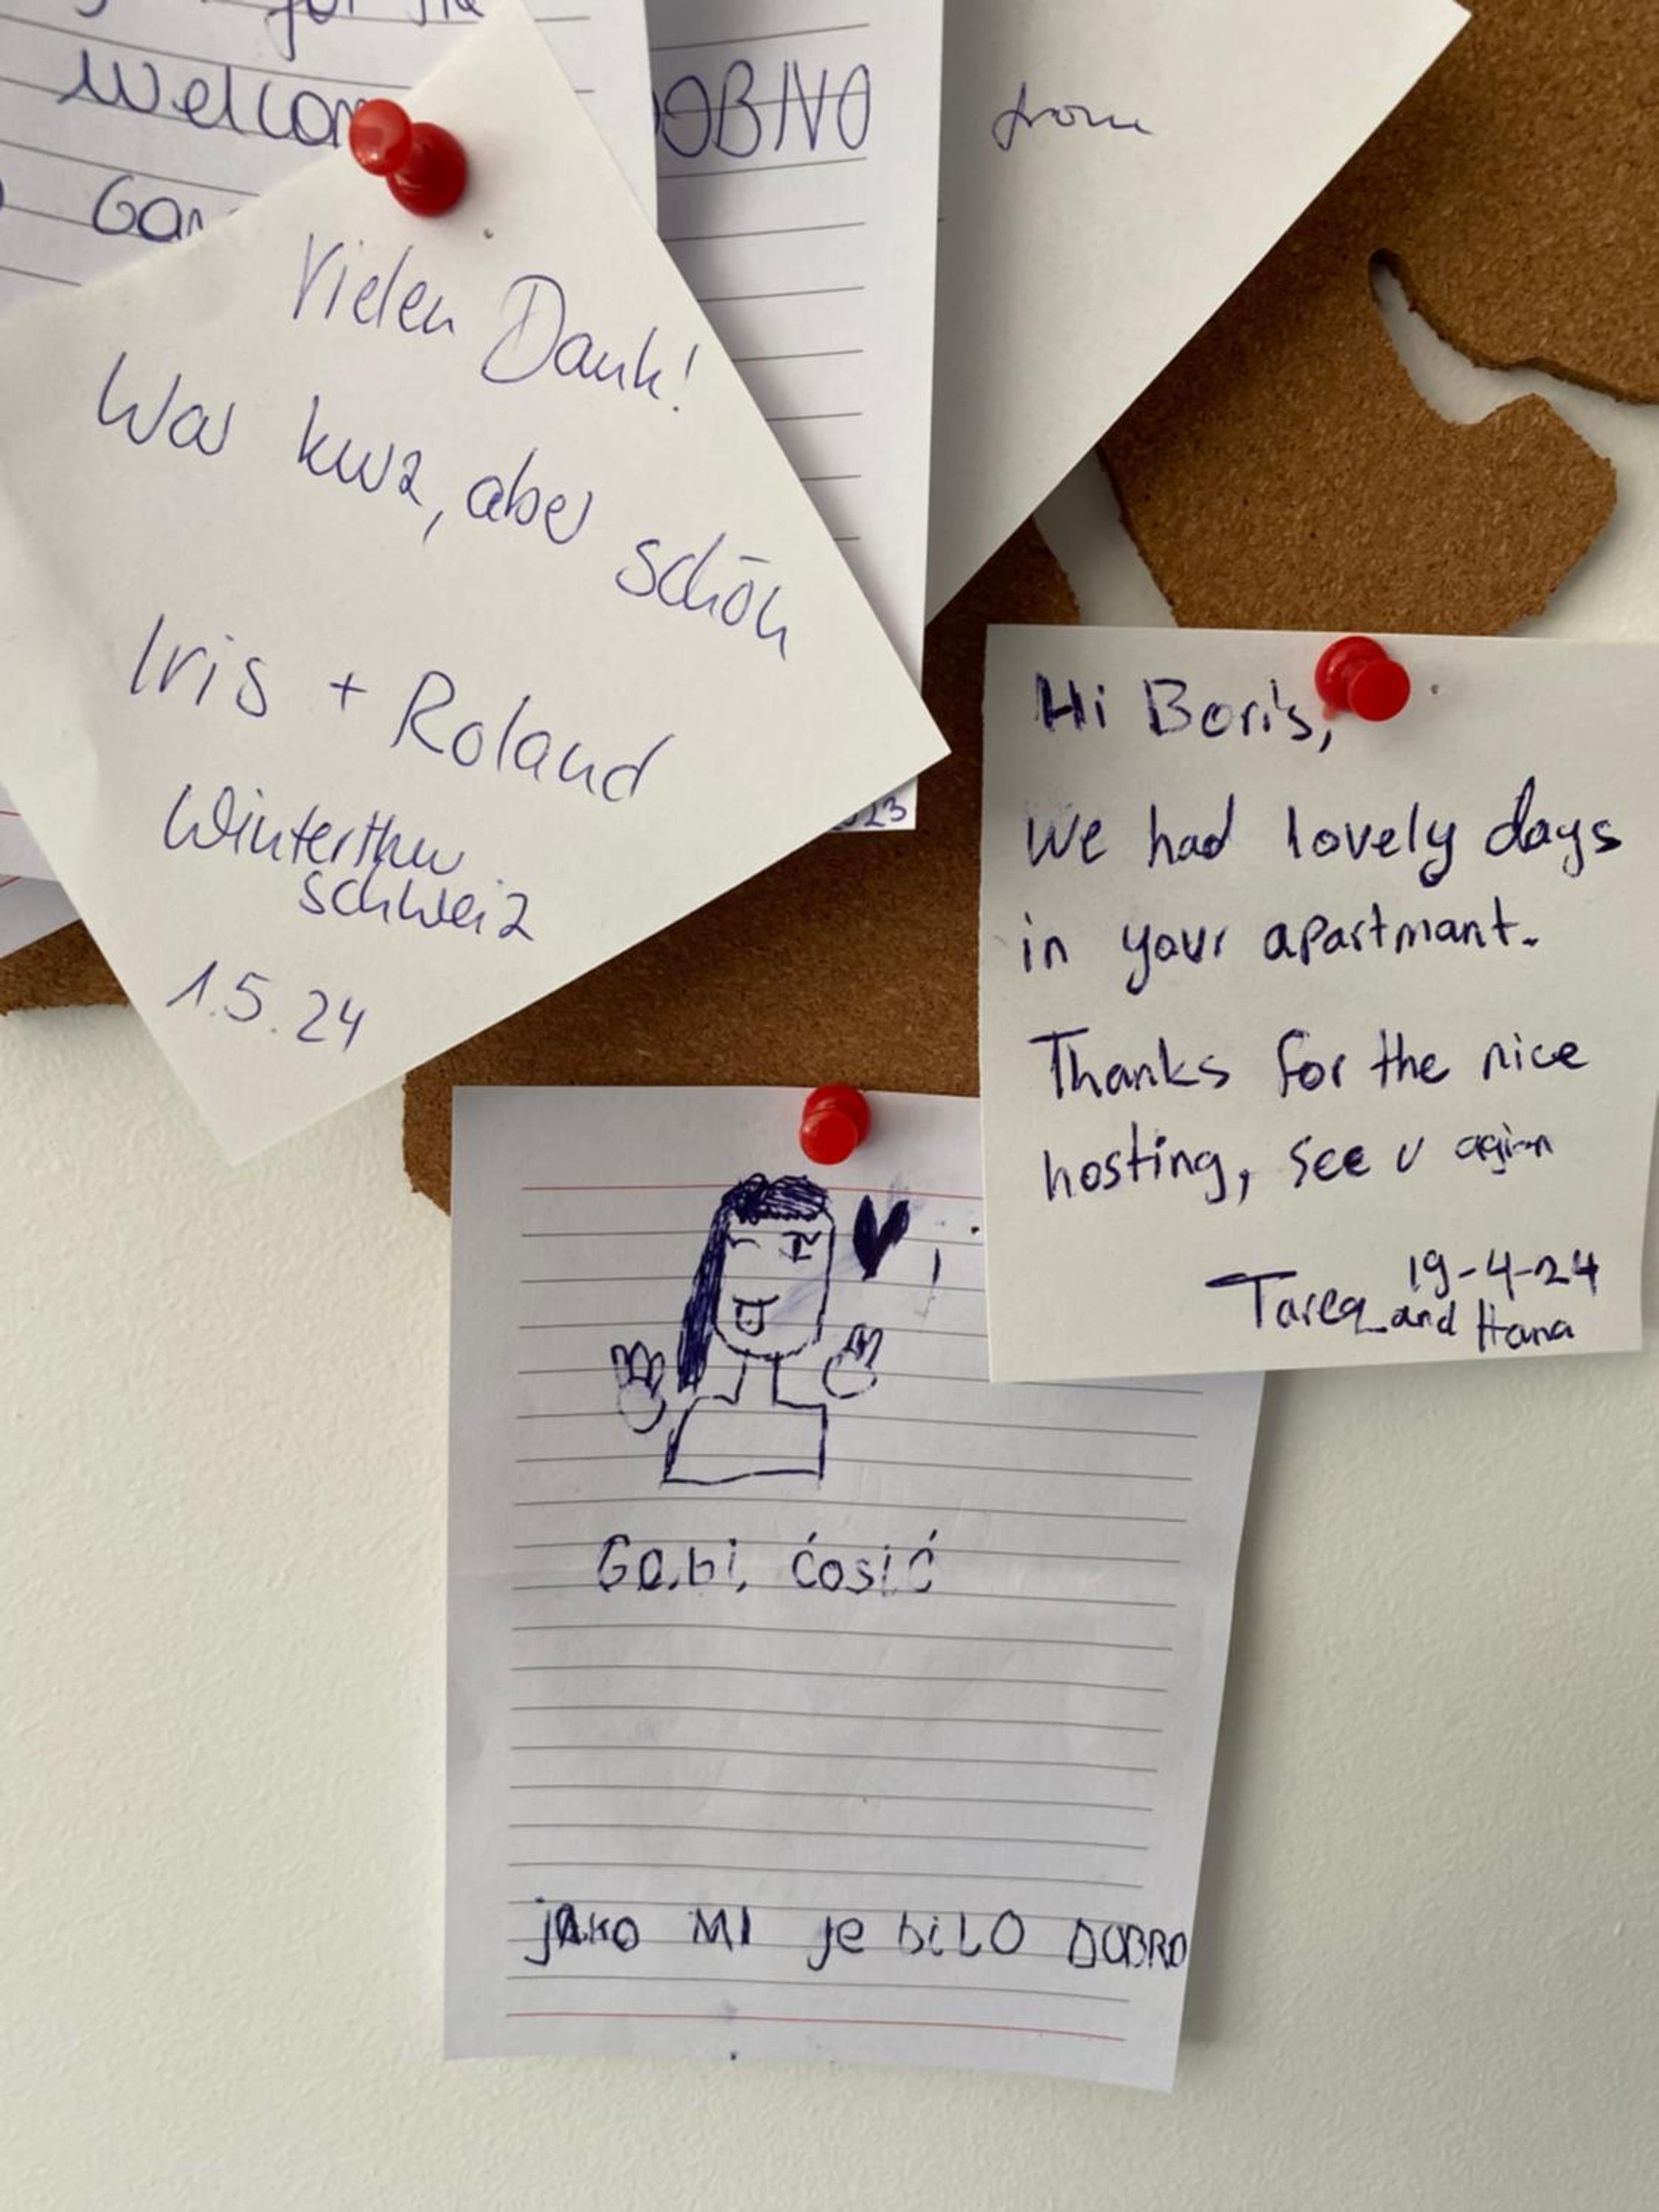 for the
welcom
Gan
OBNO
from
Vielen Dank!
War kurz, aber schön
Iris + Roland
Winterthur
Schweiz
1.5.24
23
Hi Boris,
We had lovely days
in your apartmant.
Thanks for the nice
hosting, see u agian
19-4-24
Tareq and Hana
Gabi, ćosić
jako MI je biLO DOBRO